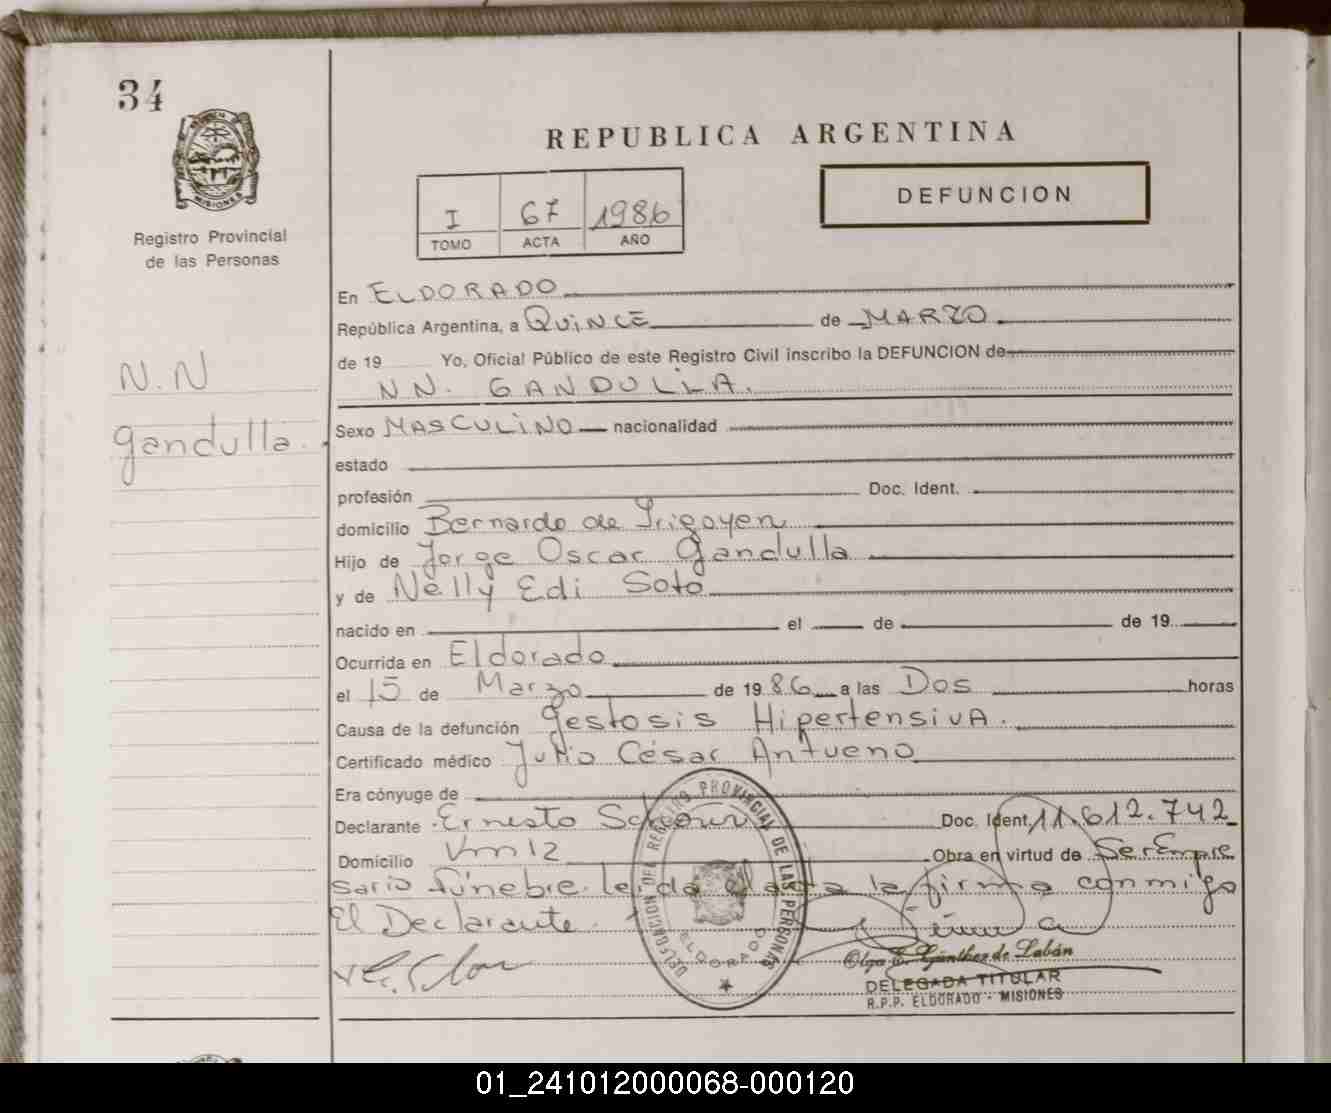 34
MISIONES
Registro Provincial
de las Personas
REPUBLICA ARGENTINA
I 67 1986
TOMO ACTA AÑO
DEFUNCION
N.N
gandulla.
En ELDORADO
República Argentina, a QUINCE de MARZO
de 19 Yo, Oficial Público de este Registro Civil inscribo la DEFUNCION de
NN. GANDULLA.
Sexo MASCULINO nacionalidad
estado
profesión Doc. Ident.
domicilio Bernardo de Irigoyen
Hijo de Jorge Oscar Gandulla
y de Nelly Edi Soto
nacido en el de de 19
Ocurrida en Eldorado
el 15 de Marzo de 1986 a las Dos horas
Causa de la defunción gestosis HipertensivA.
Certificado médico Julio César Antueno
Era cónyuge de
Declarante Ernesto Doc. Ident. 11.612.742
Domicilio Km 12 Obra en virtud de Ser Empre
sario fúnebre. leida el acta la firma conmigo
El Declarante.
DELEGACION DEL REGISTRO PROVINCIAL DE LAS PERSONAS
ELDORADO
Olga E. Günther de Labán
DELEGADA TITULAR
R.P.P. ELDORADO - MISIONES
01_241012000068-000120